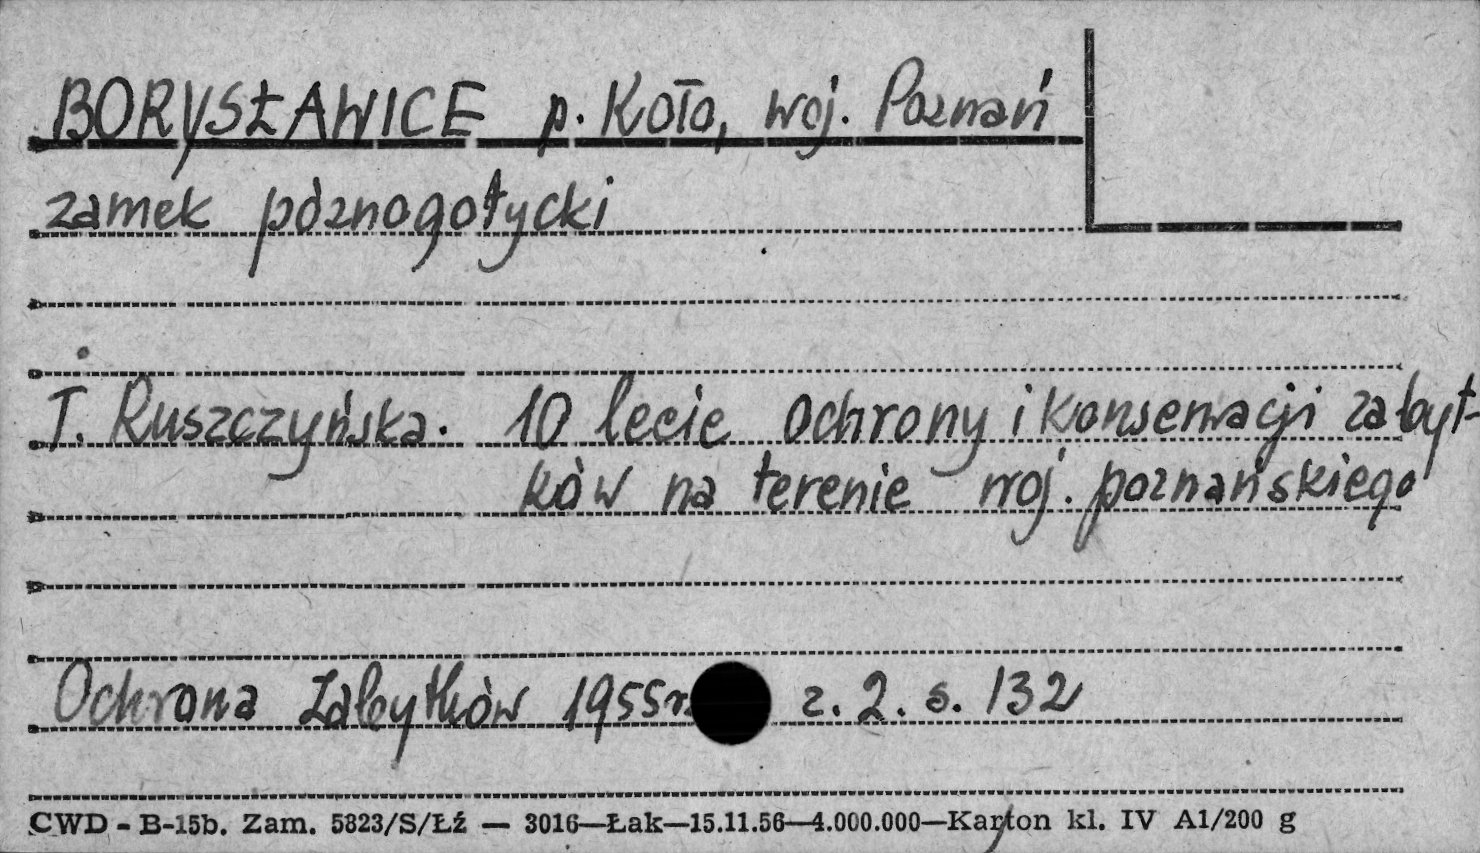 BORYSŁAWICE p. Koło, woj. Poznań
zamek póznogotycki
T. Ruszczyńska. 10 lecie ochrony i konserwacji zabyt-
ków na terenie woj. poznańskiego
Ochrona Zabytków 1955r. z. 2. s. 132
CWD - B-15b. Zam. 5823/S/Łź — 3016—Łak—15.11.56—4.000.000—Karton kl. IV A1/200 g